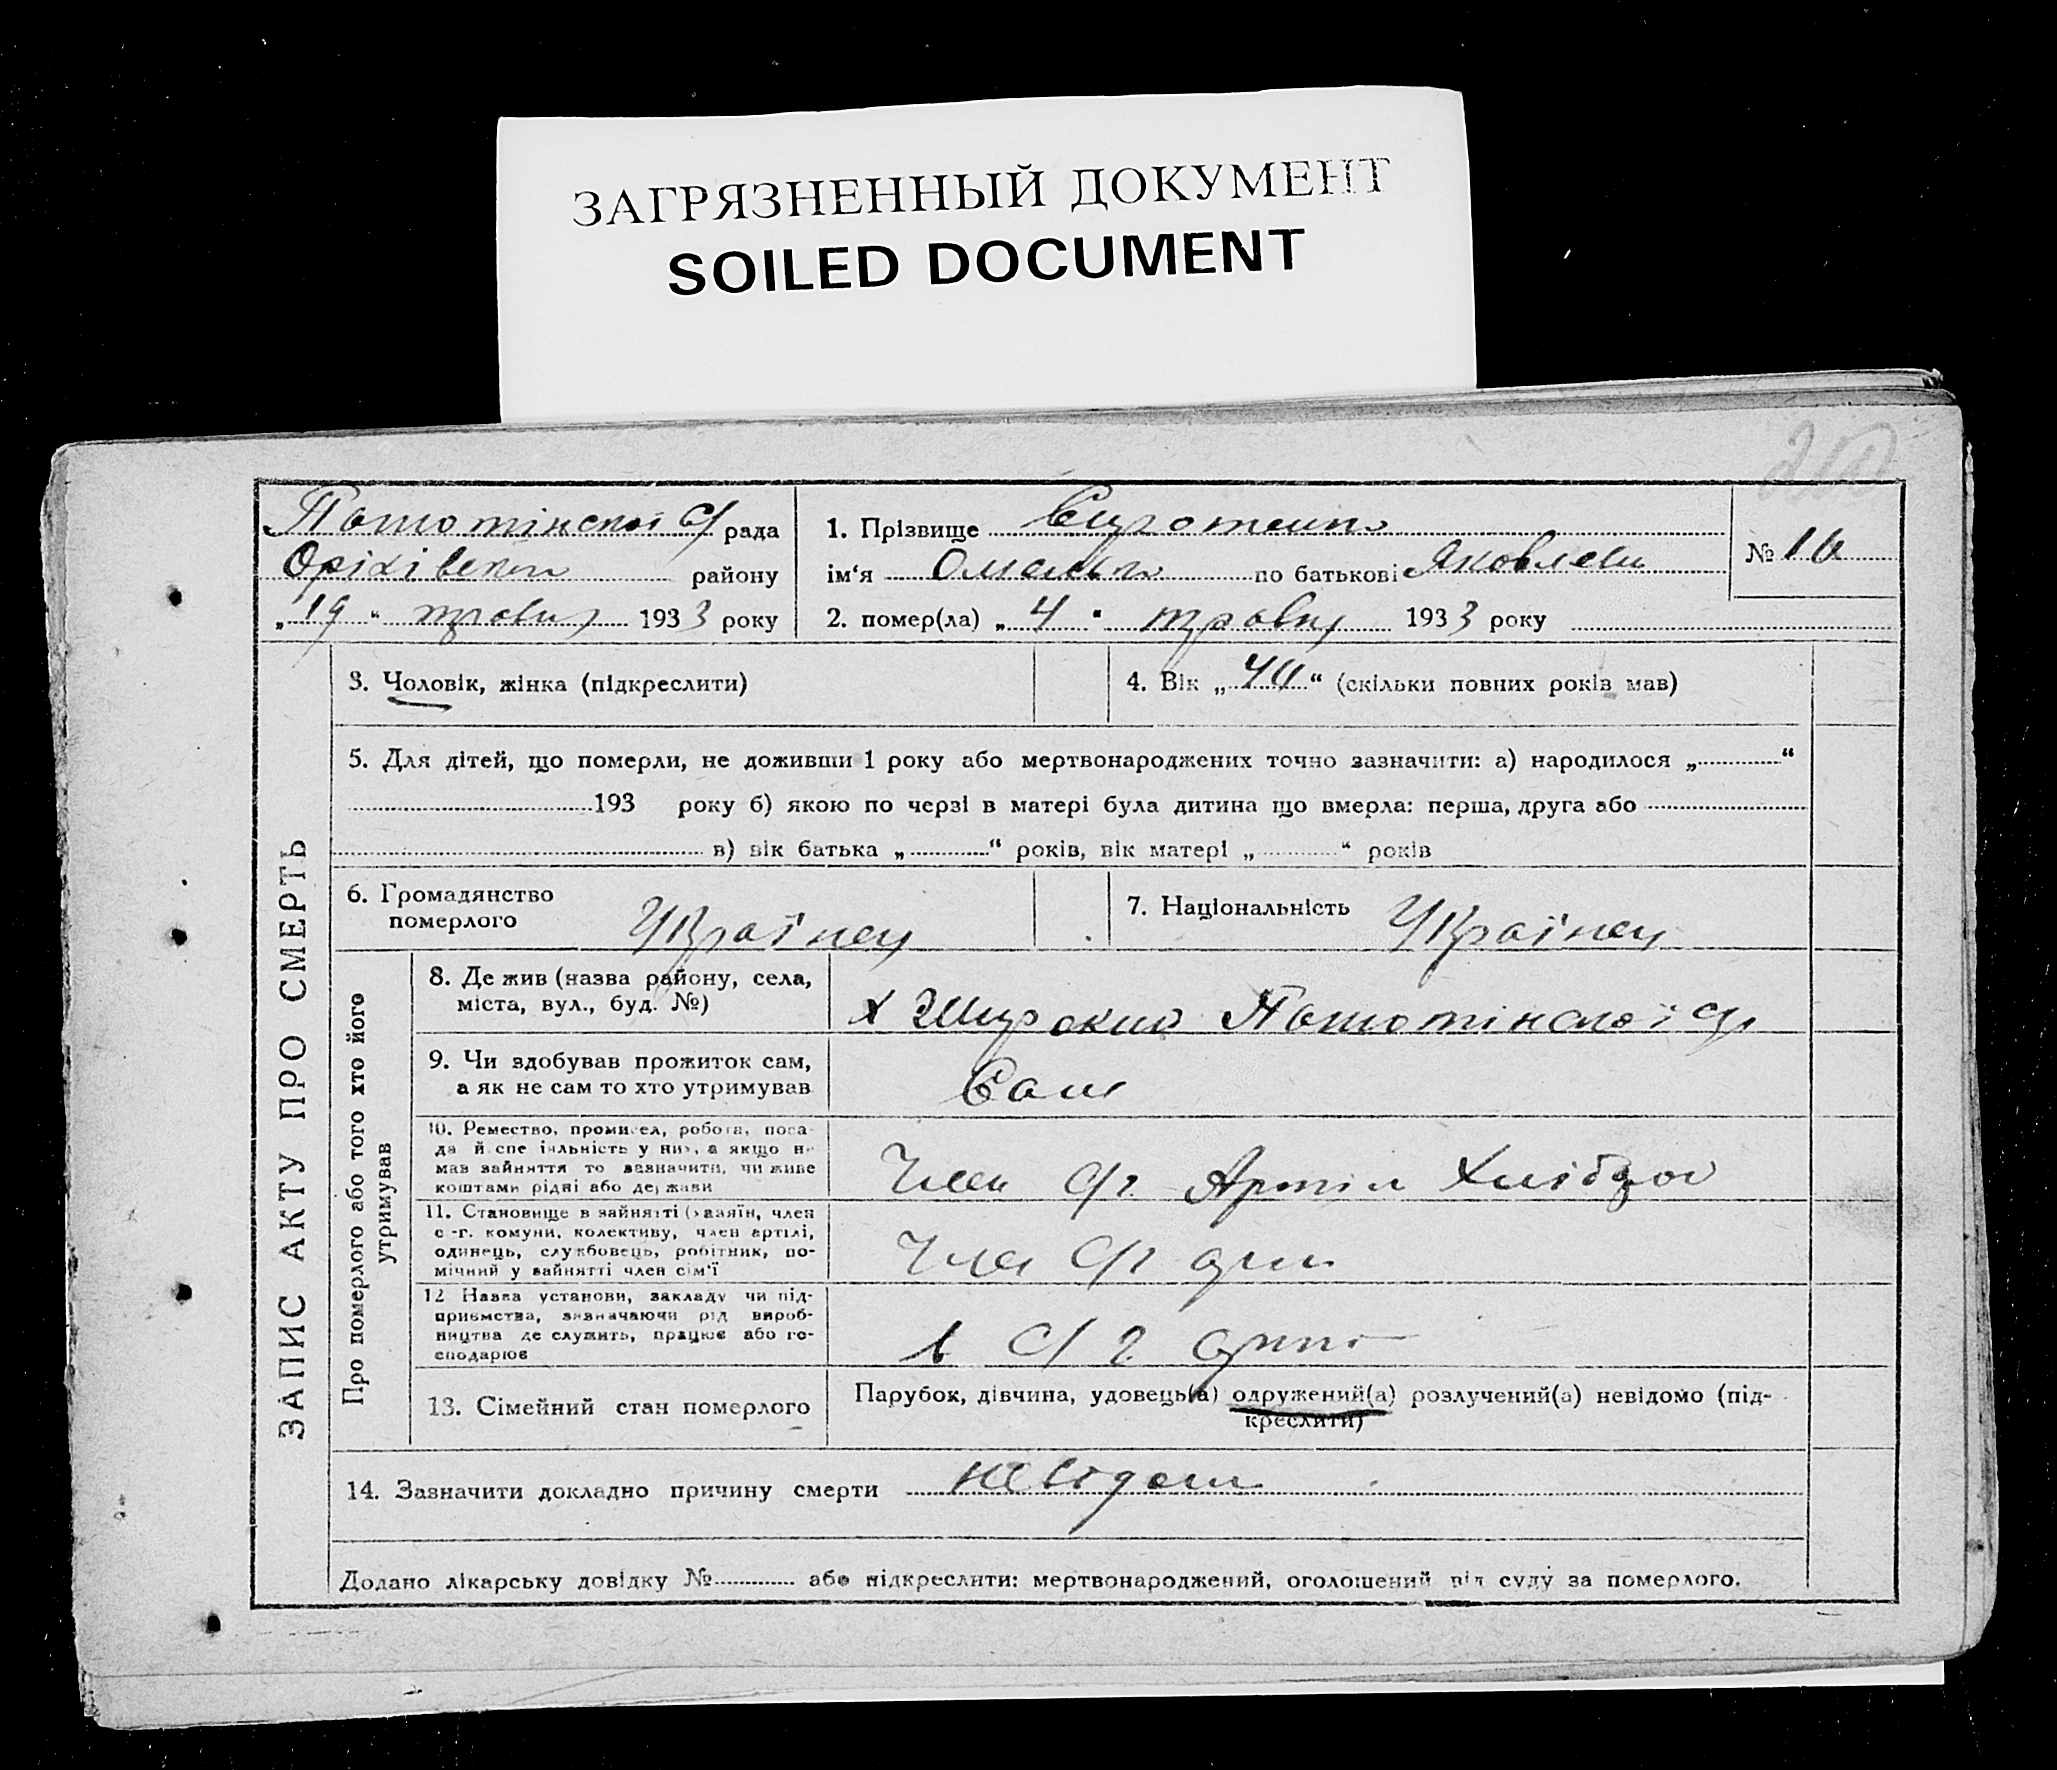 ЗАГРЯЗНЕННЫЙ ДОКУМЕНТ
SOILED DOCUMENT
С/ рада
району
„ 19 “ травня 1933 року
1. Прізвище Сиротенко
ім‘я Омелько по батькові Яковлевич
№ 16
2. помер(ла) „ 4 “ травня 1933 року
ЗАПИС АКТУ ПРО СМЕРТЬ
3. Чоловік, жінка (підкреслити)
4. Вік „ 40 “ (скільки повних років мав)
5. Для дітей, що померли, не доживши 1 року або мертвонароджених точно зазначити: а) народилося „ “
193 року б) якою по черзі в матері була дитина що вмерла: перша, друга або
в) вік батька „ “ років, вік матері „ “ років
6. Громадянство
померлого
Українец
7. Національність Українец
Про померлого або того хто його
утримував
8. Де жив (назва району, села,
міста, вул., буд. №)
х Широкий
9. Чи здобував прожиток сам,
а як не сам то хто утримував
Сам
10. Ремество, промисел, робота, поса-
да й спеціяльність у них, а якщо не
мав зайняття то зазначити, чи живе
коштами рідні або держави
Член с/г Артіл Хлібороб
11. Становище в зайнятті (хазяїн, член
с.-г. комуни, колективу, член артілі,
одинець, службовець, робітник, по-
мічний у зайнятті член сім'ї
Член с/г арт
12 Назва установи, закладу чи під-
приємства, зазначаючи рід вироб-
ництва де служить, працює або го-
сподарює
в с/г арті
13. Сімейний стан померлого
Парубок, дівчина, удовець(а) одружений(а) розлучений(а) невідомо (під-
креслити)
14. Зазначити докладно причину смерти невідома
Додано лікарську довідку № або підкреслити: мертвонароджений, оголошений від суду за померлого.